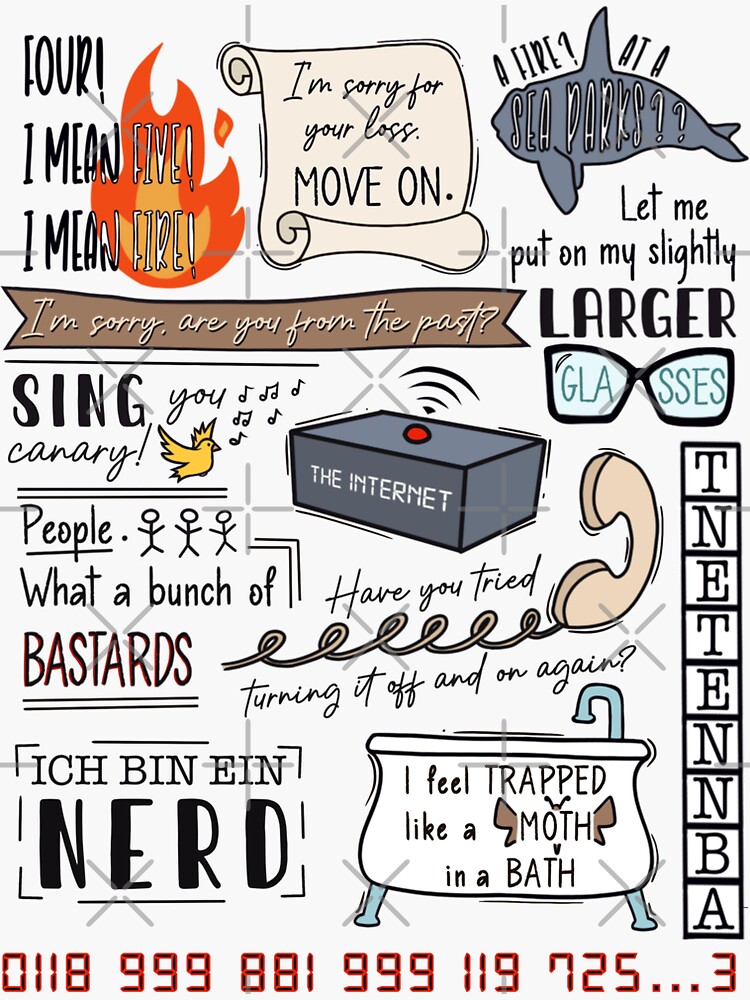 FOUR!
I MEAN FIVE!
I MEAN FIRE!
I'm sorry for
your loss.
MOVE ON.
A FIRE? AT A
SEA PARKS??
Let me
put on my slightly
LARGER
GLASSES
I'm sorry, are you from the past?
SING you
canary!
THE INTERNET
People.
What a bunch of
BASTARDS
Have you tried
turning it off and on again?
TNETENNBA
ICH BIN EIN
NERD
I feel TRAPPED
like a MOTH
in a BATH
0118 999 881 999 119 725...3